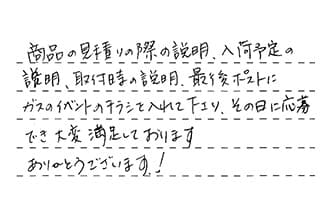 商品の見積りの際の説明、入荷予定の
説明、取付時の説明、最後ポストに
ガスのイベントのチラシを入れて下さり、その日に応募
でき大変満足しております
ありがとうございます!